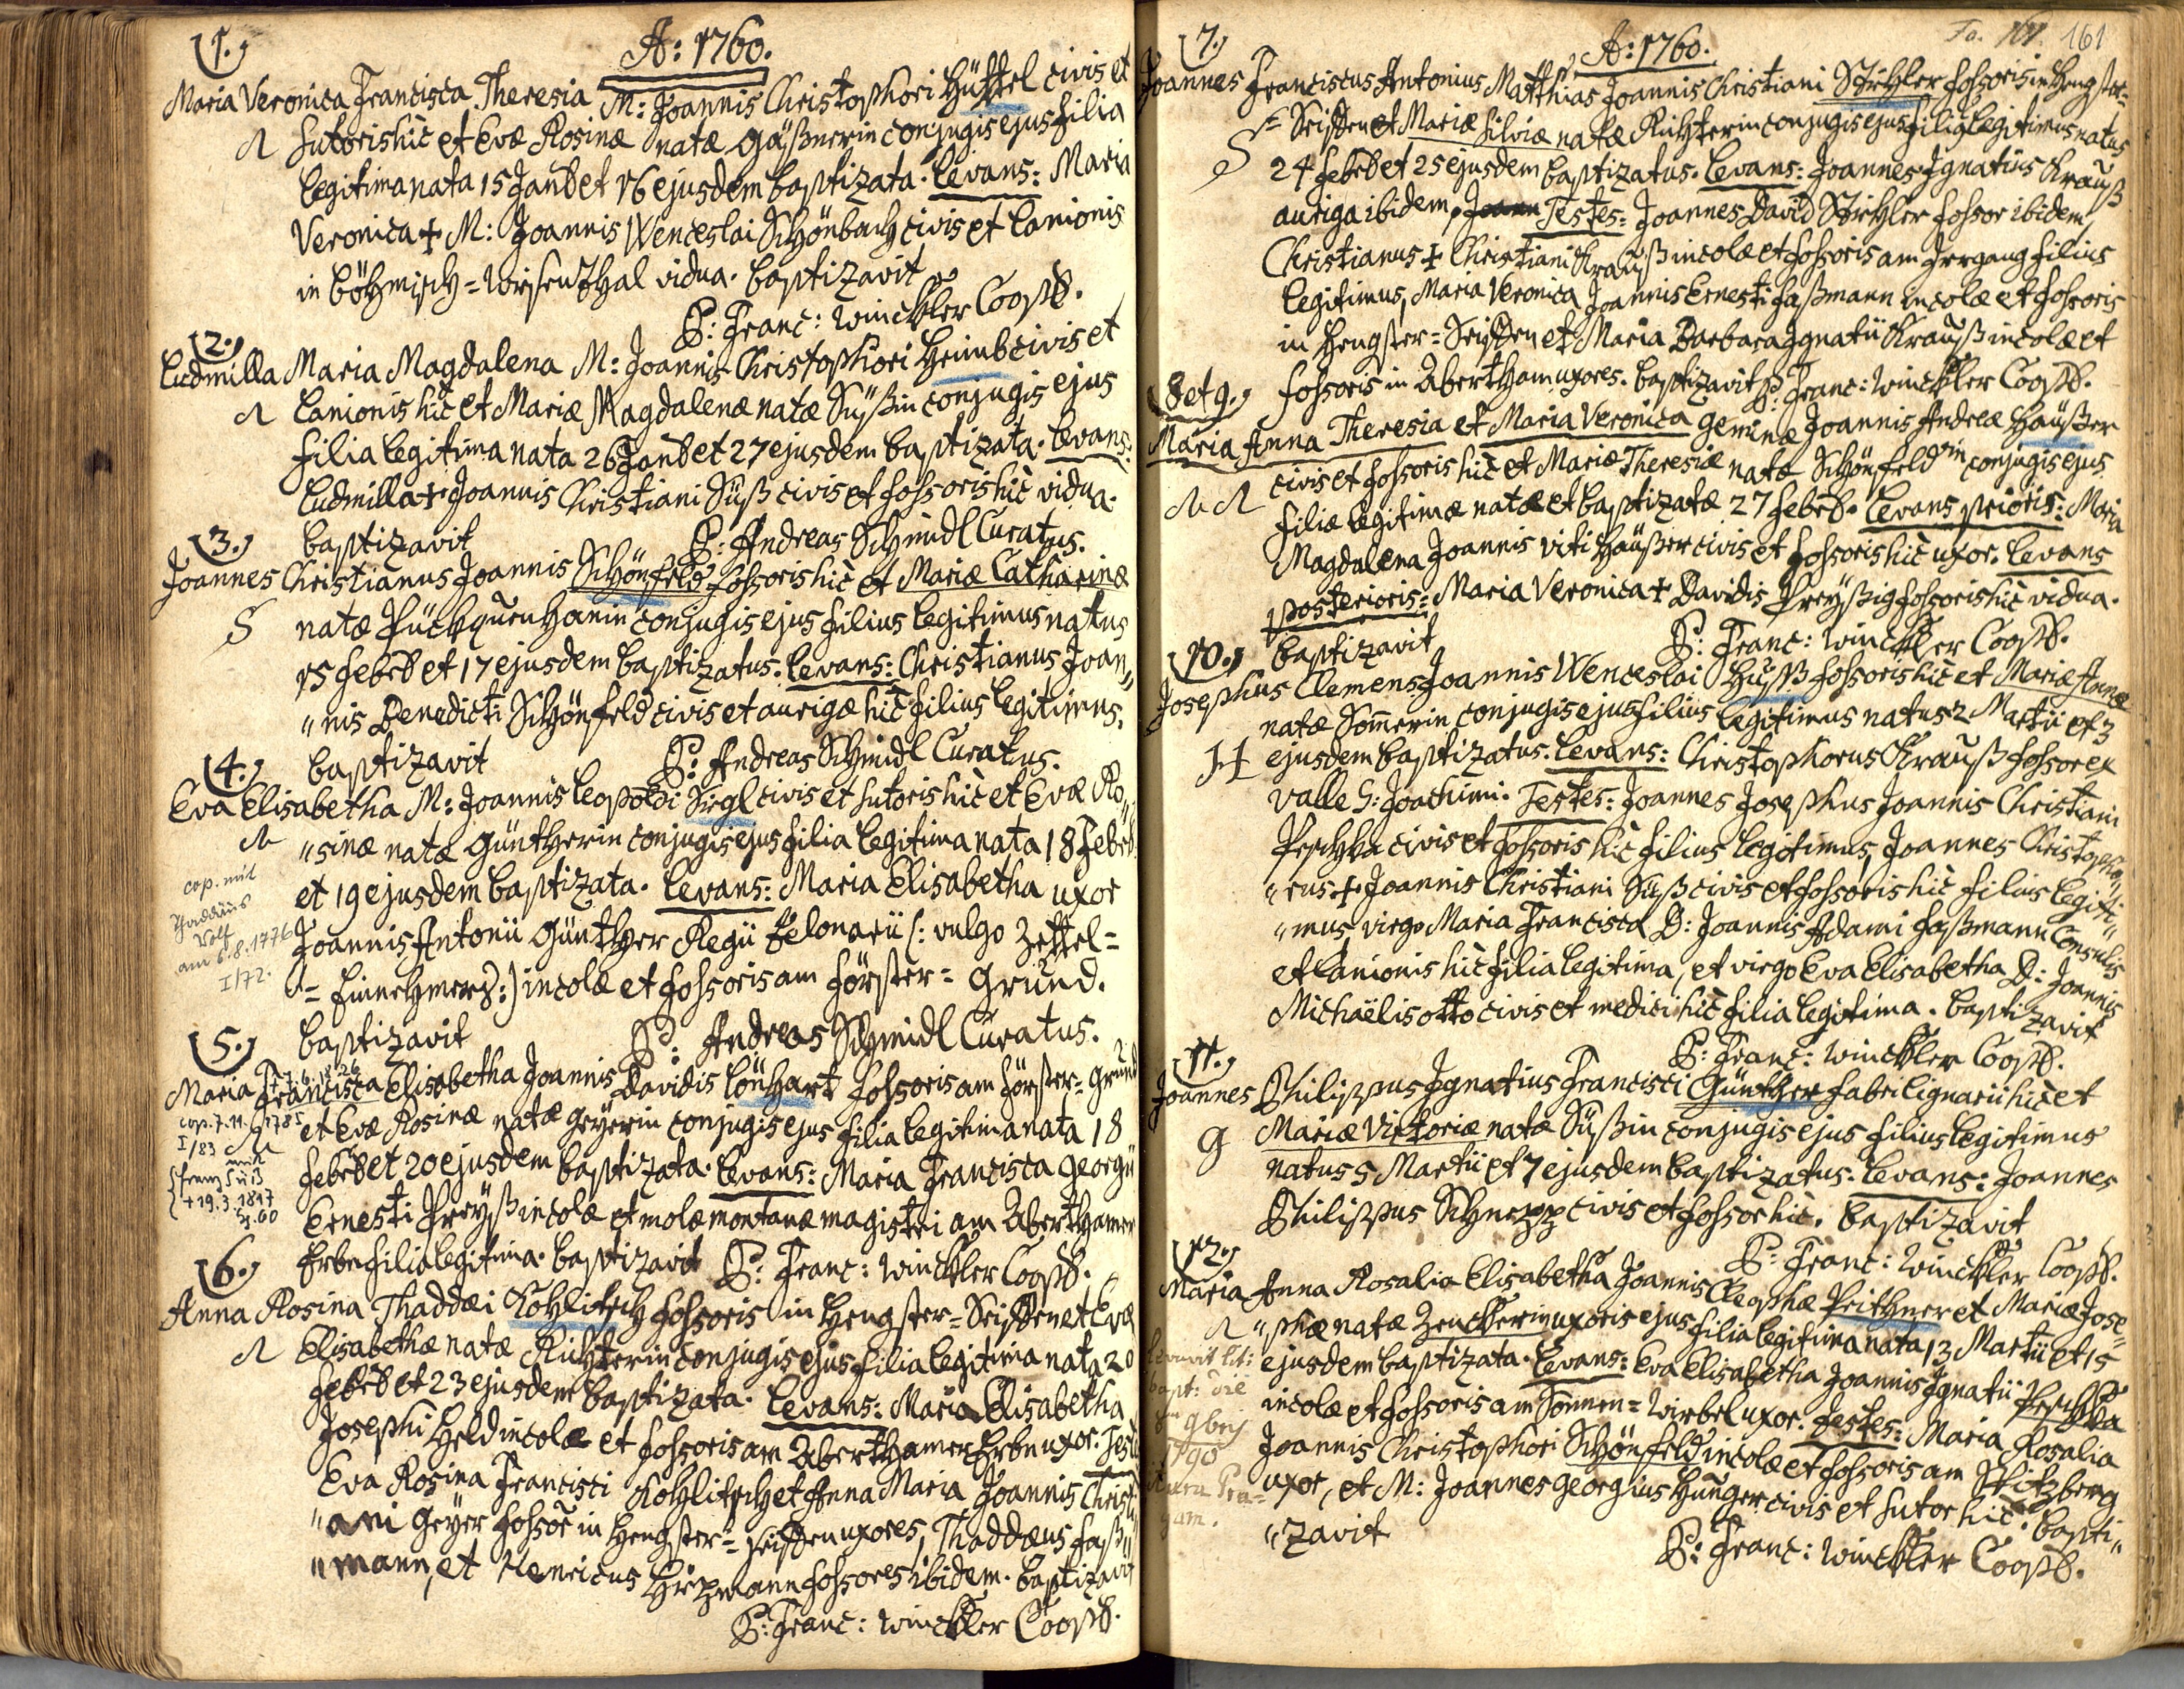 1.
A: 1760.
Maria Veronica Francisca Theresia M: Joannis Christophori Hüttel civis et
Sutoris hic et Evæ Rosinæ natæ Gäßnerin conjugis ejus filia
legitima nata 15 Jan et 16 ejusdem baptizata. Levans: Maria
Veronica + M: Joannis Wenceslai Schönbach civis et Lanionis
in böhmisch=wisenthal vidua. baptizavit
P: Franc: Winckler Coop.
2.
Ludmilla Maria Magdalena M: Joannis Christophori Heimb civis et
Lanionis hic et Mariæ Magdalenæ natæ Süßin conjugis ejus
filia legitima nata 26 Jan et 27 ejusdem baptizata. Levans:
Ludmilla + Joannis Christiani Süß civis et fossoris hic vidua.
baptizavit P: Andreas Schmidl Curatus.
3.
Joannes Christianus Joannis Schönfeld fossoris hic et Mariæ Catharinæ
S natæ conjugis ejus filius legitimus natus
15 Feb et 17 ejusdem baptizatus. Levans: Christianus Joan„
„nis Benedicti Schönfeld civis et aurigæ hic filius legitimus.
baptizavit P: Andreas Schmidl Curatus.
4.
Eva Elisabetha M: Joannis Leopoldi Sigl civis et Sutoris hic et Evæ Ro„
„sinæ natæ Güntherin conjugis ejus filia legitima nata 18 Feb
cop. mit
et 19 ejusdem baptizata. Levans: Maria Elisabetha uxor
Thaddäus
Wolf
Joannis Antonii Günther Regii Telonarii (: vulgo Zettel=
am 6.8.1776
I/72.
=Einnehmers:) incolæ et fossoris am Förster=Grund.
baptizavit P: Andreas Schmidl Curatus.
5.
Maria Francisca Elisabetha Joannis Davidis Lönhart fossoris am Förster=Grund
cop. 7.11.1785
et Evæ Rosinæ natæ Geyerin conjugis ejus filia legitima nata 18
I/83
mit
Feb et 20 ejusdem baptizata. Levans: Maria Francisca Georgii
Franz Süß
+19.3.1817
Ernesti Preyß incolæ et molæ montanæ magistri am Aberthamer
Erbn filia legitima. baptizavit P: Franc: Winckler Coop.
6.
Anna Rosina Thaddæi Kohlitsch fossoris in Hengster=Seiffen et Evæ
Elisabethæ natæ Richterin conjugis ejus filia legitima nata 20
Feb et 23 ejusdem baptizata. Levans: Maria Elisabetha
Josephi Held incolæ et fossoris am Aberthamer Erbn uxor.
Eva Rosina Francisci Kohlitsch et Anna Maria Joannis Christi„
„ani Geyer fossor in Hengster=seiffen uxores, Thaddæus Faß„
„mann, et Henricus fossores ibidem. baptizavit
P: Franc: Winckler Coop.
7.
A: 1760.
161
Joannes Franciscus Antonius Matthias Joannis Christiani Strihler fossoris in Hengster=
=Seiffen et Mariæ Silviæ natæ Richterin conjugis ejus filius legitimus natus
S 24 Feb et 25 ejusdem baptizatus. Levans: Joannes Ignatius Krauß
auriga ibidem, Joann Testes: Joannes David Strihler fossor ibidem,
Christianus + Christiani Krauß incolæ et fossoris am Irrgang filius
legitimus, Maria Veronica Joannis Ernesti Faßmann incolæ et fossoris
in Hengster=Seiffen et Maria Barbara Ignatii Krauß incolæ et
fossoris in Abertham uxores. baptizavit P: Franc: Winckler Coop.
8 et 9.
Maria Anna Theresia et Maria Veronica geminæ Joannis Andreæ Häußer
civis et fossoris hic et Mariæ Theresiæ natæ Schönfeldin conjugis ejus
filiæ legitimæ natæ et baptizatæ 27 Feb. Levans prioris: Maria
Magdalena Joannis Viti Häußer civis et fossoris hic uxor. Levans
posterioris: Maria Veronica + Davidis Preyßig fossoris hic vidua.
baptizavit P: Franc: Winckler Coop.
10.
Josephus Clemens Joannis Wenceslai Hüß fossoris hic et Mariæ Annæ
natæ Somerin conjugis ejus filius legitimus natus 2 Martii et 3
H ejusdem baptizatus. Levans: Christophorus Krauß fossor ex
valle S: Joachimi. Testes: Joannes Josephus Joannis Christiani
Peschka civis et fossoris hic filius legitimus, Joannes Christopho„
„rus + Joannis Christiani Süß civis et fossoris hic filius legiti„
„mus virgo Maria Francisca D: Joannis Adami Faßmann Consulis
et Lanionis hic filia legitima, et virgo Eva Elisabetha D: Joannis
Michaëlis Otto civis et medici hic filia legitima. baptizavit
P: Franc: Winckler Coop.
11.
Joannes Philippus Ignatius Francisci Günther fabri lignarii hic et
G Mariæ Victoriæ natæ Süßin conjugis ejus filius legitimus
natus 5 Martii et 7 ejusdem baptizatus. Levans: Joannes
Philippus Schnepp civis et fossor hic. baptizavit
P: Franc: Winckler Coop.
12.
Maria Anna Rosalia Elisabetha Joannis Cleophæ Peithner et Mariæ Jose„
„phæ natæ Zenckerin uxoris ejus filia legitima nata 13 Martii et 15
ejusdem baptizata. Levans: Eva Elisabetha Joannis Ignatii Peschka
incolæ et fossoris am Sonnen=Wirbel uxor. Testes: Maria Rosalia
Joannis Christophori Schönfeld incolæ et fossoris am Spitzberg
uxor, et M: Joannes Georgius Hunger civis et Sutor hic. bapti„
„zavit
P: Franc: Winckler Coop.